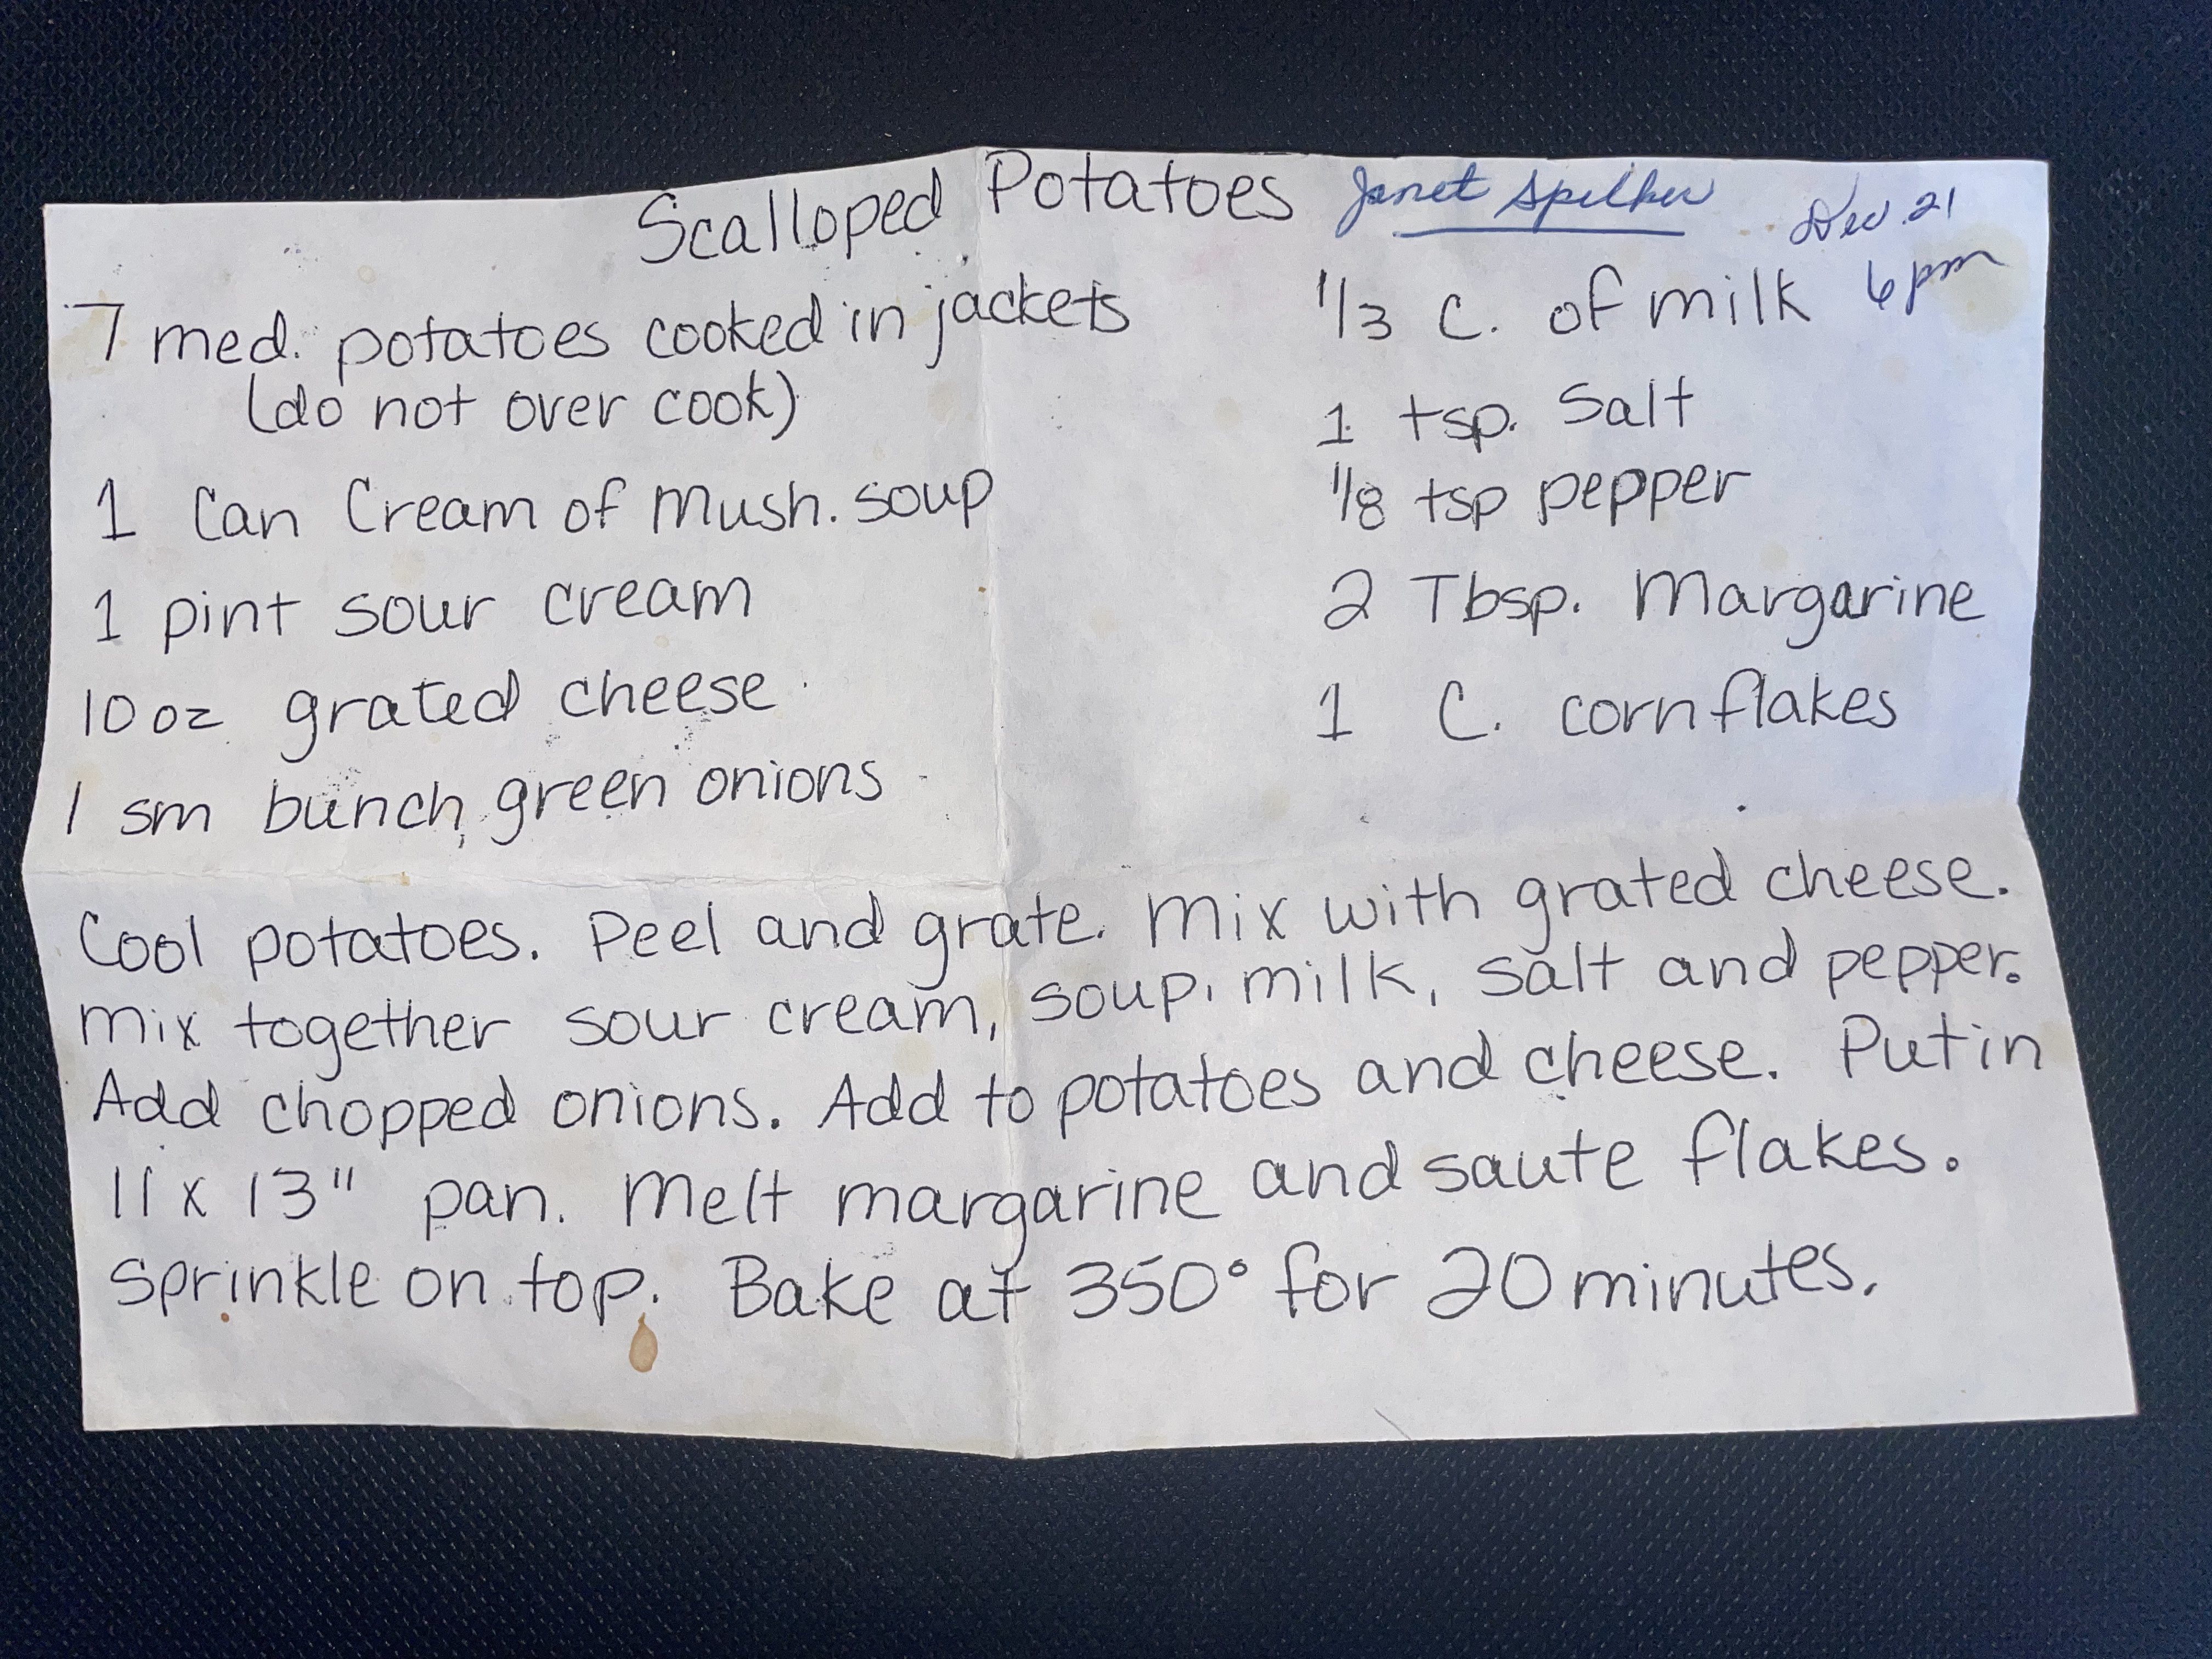 Scalloped Potatoes Janet Spilker Dec 21
6 pm
7 med. potatoes cooked in jackets
(do not over cook)
1 Can Cream of Mush. soup
1 pint sour cream
10 oz grated cheese
1 sm bunch green onions
1/3 C. of milk
1 tsp. Salt
1/8 tsp pepper
2 Tbsp. Margarine
1 C. corn flakes
Cool potatoes. Peel and grate. Mix with grated cheese.
Mix together sour cream, soup, milk, salt and pepper.
Add chopped onions. Add to potatoes and cheese. Put in
11 x 13" pan. Melt margarine and saute flakes.
Sprinkle on top. Bake at 350° for 20 minutes.